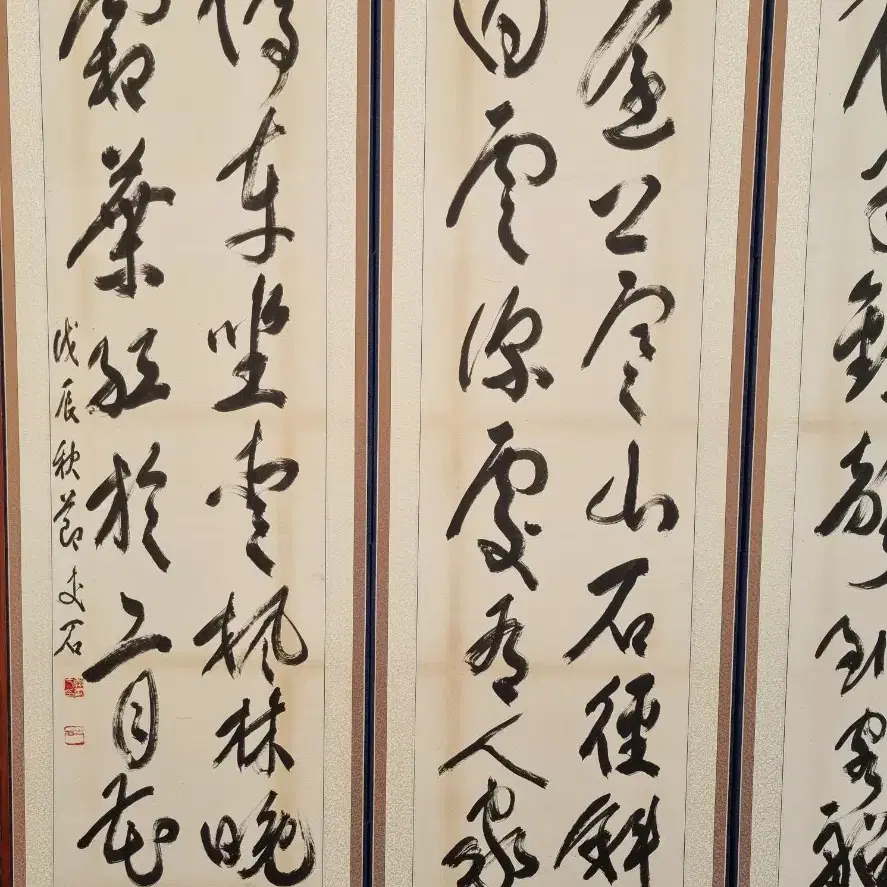 夜半鐘聲到客船
遠上寒山石徑斜
白雲深處有人家
停車坐愛楓林晚
霜葉紅於二月花
戊辰秋節 石